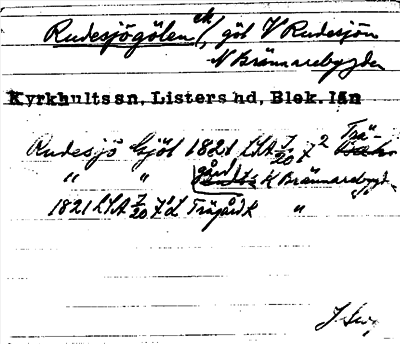 Rudesjögölen ek/, göl V Rudesjön
N Brännarebygden
Kyrkhultssn, Listers hd, Blek. län
Rudesjö Gjöl 1821 LSA J/20 7 2 Trä-
" " gård K Brännarebygd
1821 LSA J/20 7 Trägård K "